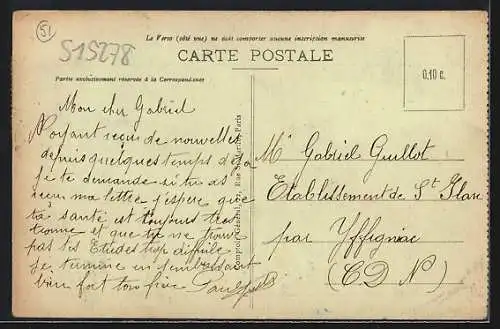 51
515278
Le Verso (côté vue) ne doit comporter aucune inscription manuscrite
CARTE POSTALE
Partie exclusivement réservée à la Correspondance
0.10 c.
Mon cher Gabriel
N'ayant reçu de nouvelles
depuis quelques temps de toi
je te demande si tu as
reçu ma lettre j'espere que
ta santé est toujours
et que tu ne trouve
pas les Etudes trop difficile
Je termine en
bien fort ton frère
Rue Paris
Mr Gabriel Guillot
Etablissement de St Ilan
par Yffigniac
(C D N)